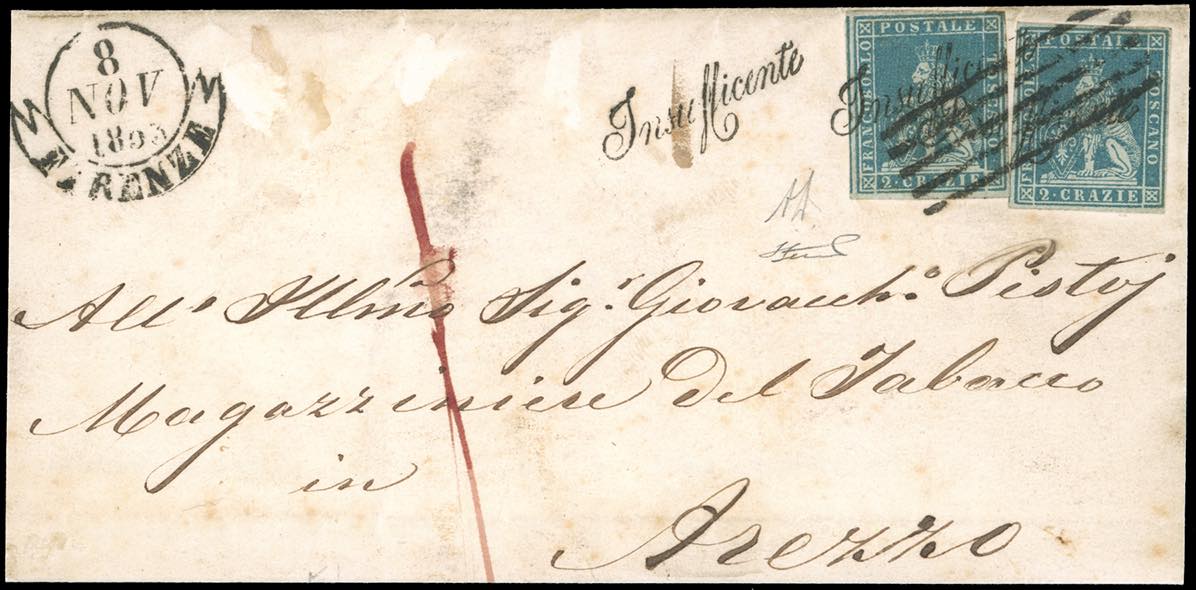 8
NOV
1853
FIRENZE
Insufficente
Insufficente
FRANCOBOLLO POSTALE TOSCANO
2 · CRAZIE
POSTALE TOSCANO
2 · CRAZIE
All'o Illmo Sigr. Giovacch.o Pistoj
Magazziniere del Tabacco
in
Arezzo